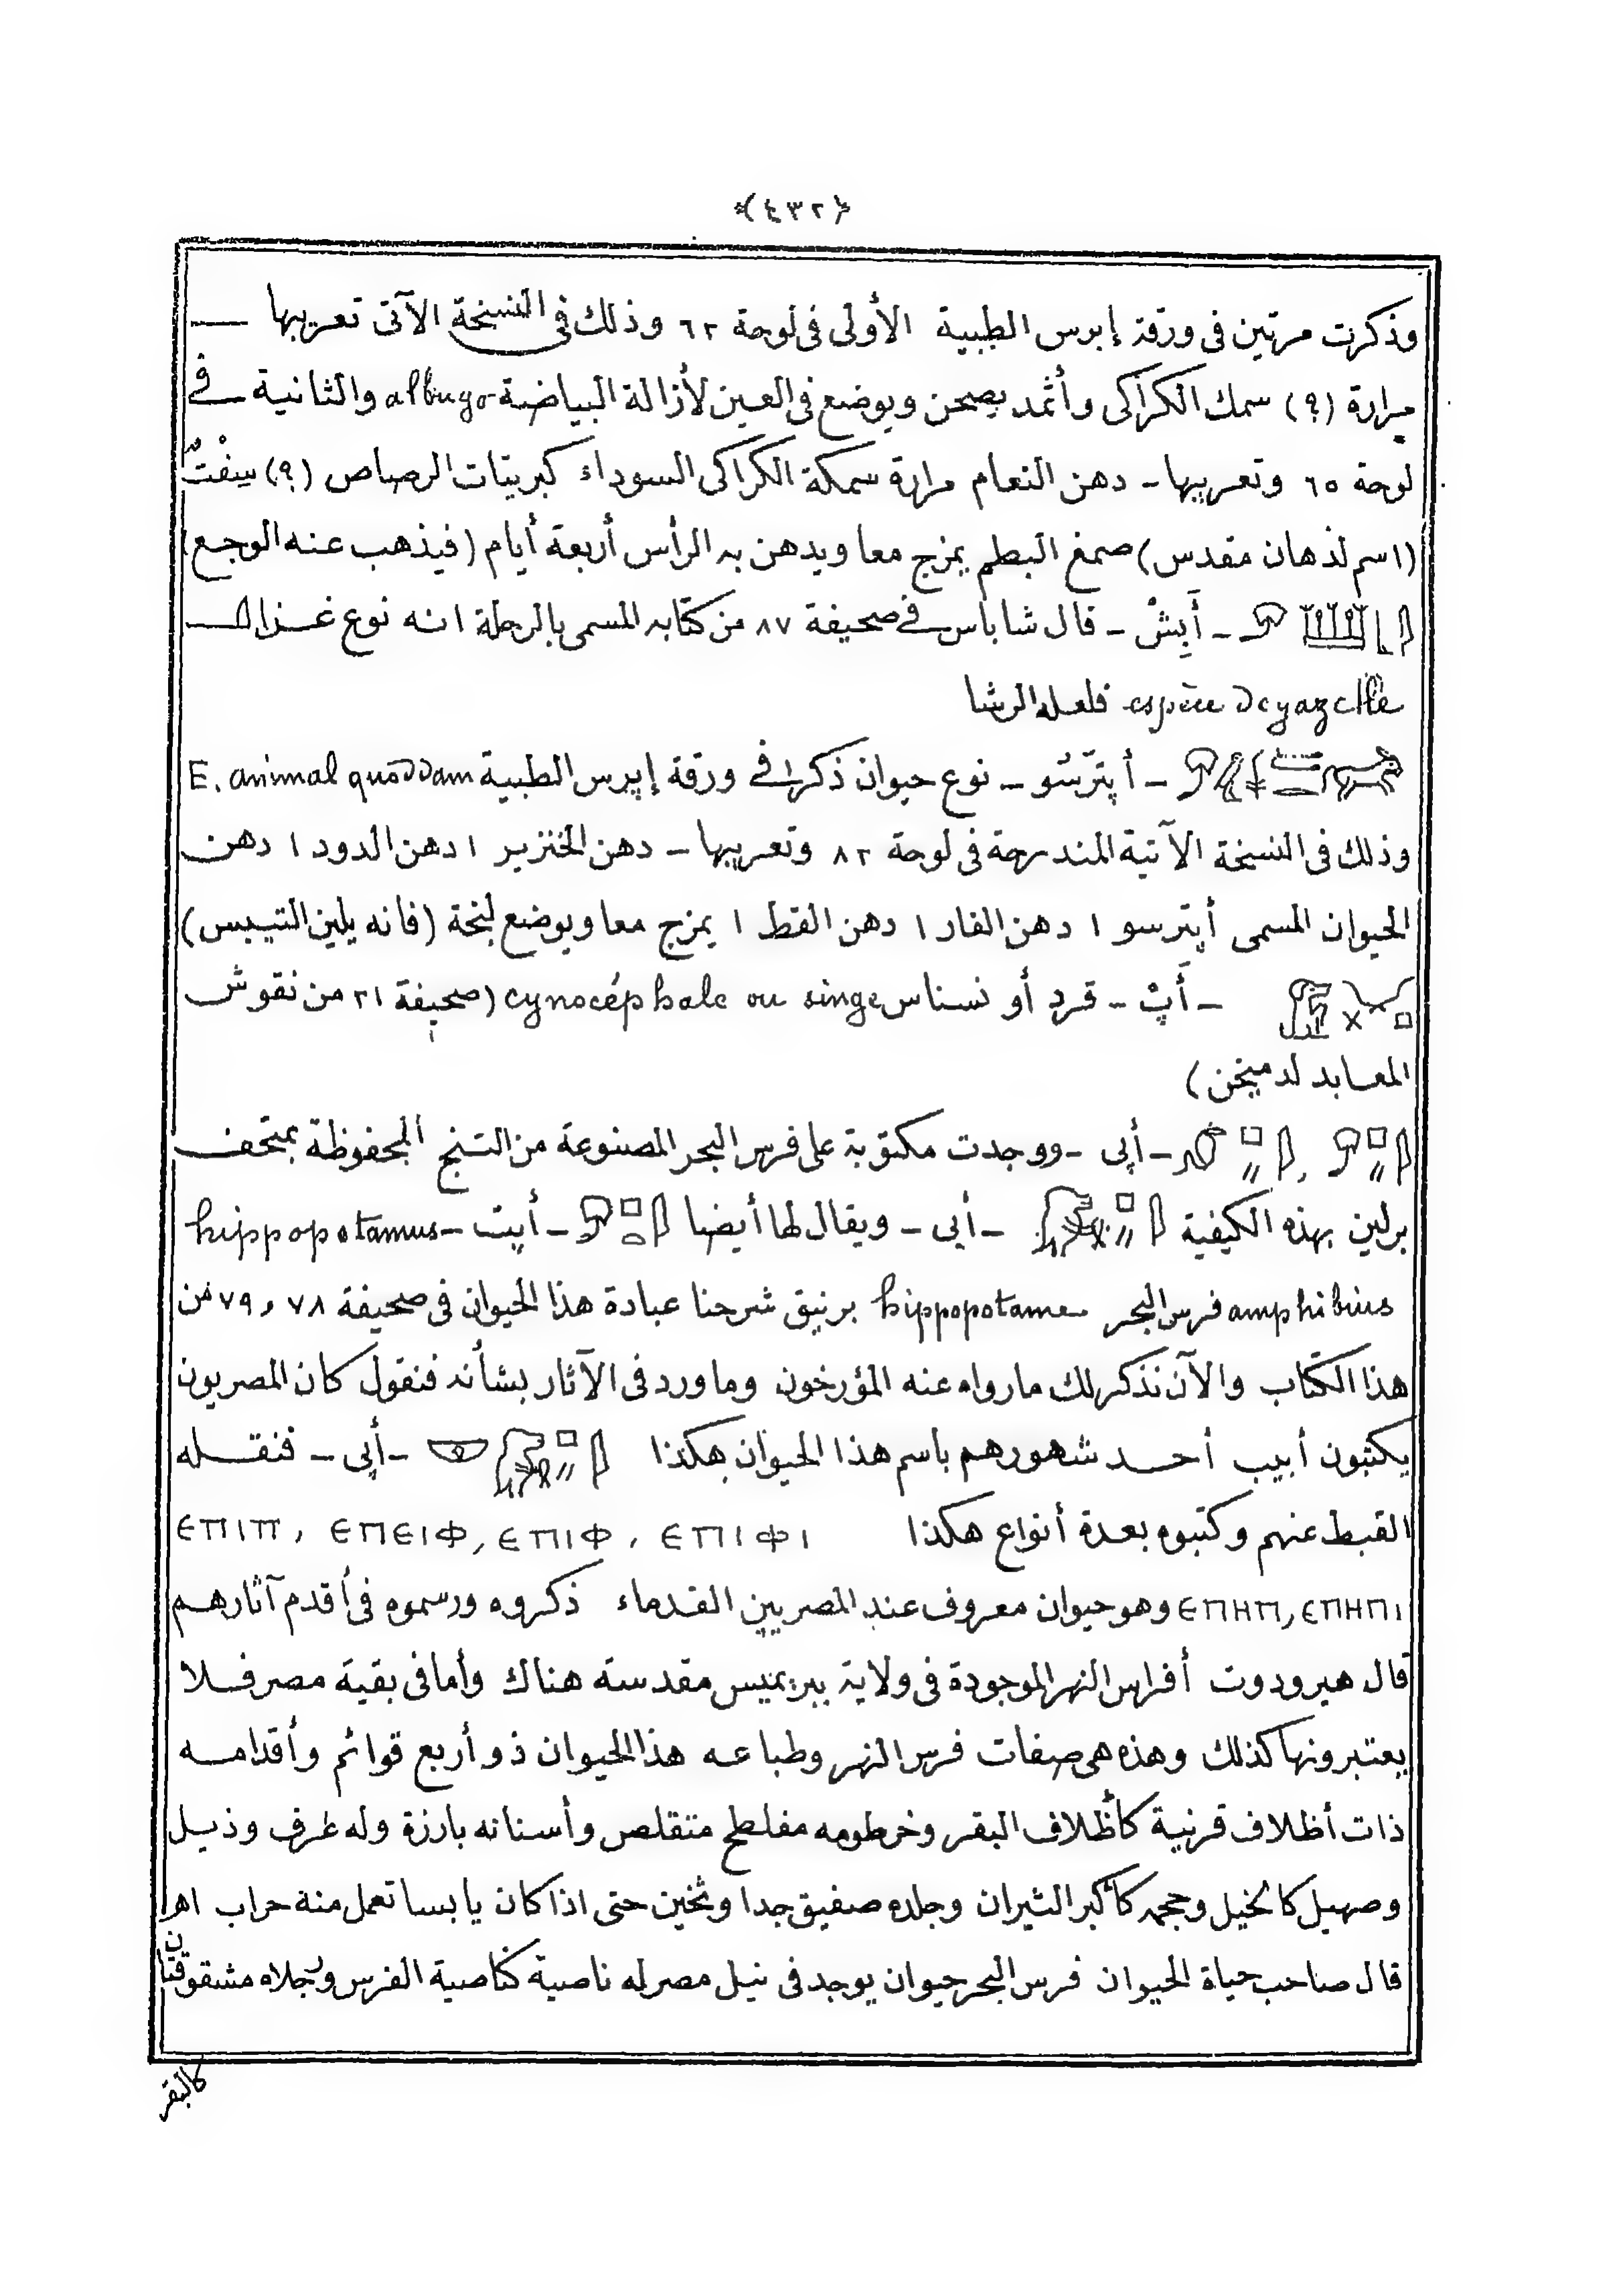 ﴿٤٣٢﴾
وذكرت مرتين فى ورقة إبرس الطبية الأولى فى لوحة ٦٢ وذلك فى النسخة الآتى تعريبها
مرارة (؟) سمك الكراكى وأثمد يصحن ويوضع فى العين لأزالة البياضة albugo والثانية فى
لوحة ٦٥ وتعريبها - دهن النعام مرارة سمكة الكراكى السوداء كبريتات الرصاص (؟) سِفْتْ
(اسم لدهان مقدس) صمغ البطم يمزج معا ويدهن به الرأس أربعة أيام (فيذهب عنه الوجع)
- أَبِشْ - قال شاباس فى صحيفة ٨٧ من كتابه المسمى بالرحلة انه نوع غزال
espèce de gazelle فلعله الرشا
- أپترسُو - نوع حيوان ذكر فى ورقة إبرس الطبية E. animal quoddam
وذلك فى النسخة الآتية المندرجة فى لوحة ٨٢ وتعريبها - دهن الخنزير ١ دهن الدود ١ دهن
الحيوان المسمى أپترسو ١ دهن الفار ١ دهن القط ١ يمزج معا ويوضع لبخة (فانه يلين التيبس)
- أَپْ - قرد أو نسناس cynocéphale ou singe (صحيفة ٢١ من نقوش
المعابد لدميخن)
- أپى - ووجدت مكتوبة على فرس البحر المصنوعة من التنج المحفوظة بمتحف
برلين بهذه الكيفية - أپى - ويقال لها أيضا - أپت - hippopotamus
amphibius فرس البحر hippopotame برنيق شرحنا عبادة هذا الحيوان فى صحيفة ٧٨ و ٧٩ من
هذا الكتاب والآن نذكر لك مارواه عنه المؤرخون وما ورد فى الآثار بشأنه فنقول كان المصريون
يكتبون أبيب أحد شهورهم باسم هذا الحيوان هكذا - أپى - فنقله
القبط عنهم وكتبوه بعدة أنواع هكذا ⲉⲡⲓⲫⲓ , ⲉⲡⲓⲫ , ⲉⲡⲉⲓⲫ , ⲉⲡⲓⲡ
ⲉⲡⲏⲡⲓ , ⲉⲡⲏⲡ وهو حيوان معروف عند المصريين القدماء ذكروه ورسموه فى أقدم آثارهم
قال هيرودوت أفراس النهر الموجودة فى ولاية ببريميس مقدسة هناك وأما فى بقية مصر فلا
يعتبرونها كذلك وهذه هى صفات فرس النهر وطباعه هذا الحيوان ذو أربع قوائم وأقدامه
ذات أظلاف قرنية كأظلاف البقر وخرطومه مفلطح متقلص وأسنانه بارزة وله عُرف وذيل
وصهيل كالخيل وحجمه كأكبر الثيران وجلده صفيق جدا وثخين حتى اذا كان يابسا تعمل منه حراب اهـ
قال صاحب حياة الحيوان فرس البحر حيوان يوجد فى نيل مصر له ناصية كناصية الفرس ورجلاه مشقوقتان
كالبقر